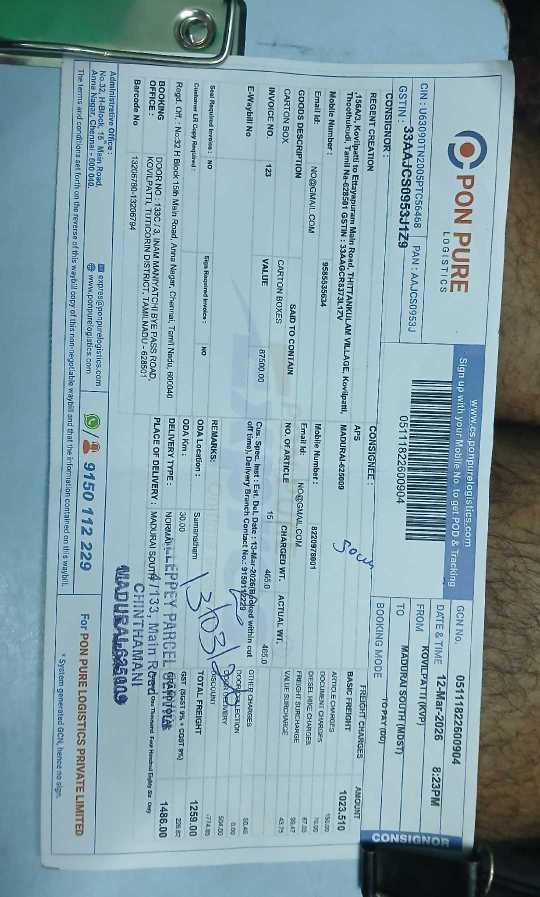 PON PURE
LOGISTICS
www.cs.ponpurelogistics.com
Sign up with your Mobile No. to get POD & Tracking
CIN : U63090TN2005PTC56468 PAN : AAJCS0953J
GSTIN : 33AAJCS0953J1Z9
05111822600904
GCN No. 05111822600904
DATE & TIME 12-Mar-2026 8:23PM
FROM KOVILPATTI (KVP)
TO MADURAI SOUTH (MDST)
BOOKING MODE TO PAY (DD)
CONSIGNOR
CONSIGNOR :
REGENT CREATION
,156A/3, Kovilpatti to Ettayapuram Main Road, THITTANKULAM VILLAGE, Kovilpatti,
Thoothukudi, Tamil Na-628501 GSTIN : 33AAGCR8373L1ZV
Mobile Number : 9585535634
Email Id: NO@GMAIL.COM
CONSIGNEE :
APS
MADURAI-625009
Mobile Number : 8220978001
Email Id: NO@GMAIL.COM
GOODS DESCRIPTION SAID TO CONTAIN NO. OF ARTICLE CHARGED WT. ACTUAL WT.
CARTON BOX CARTON BOXES 15 465.0 465.0
INVOICE NO. 123 VALUE 87500.00
E-Waybill No
Cus. Spec. Inst : Est. Del. Date : 13-Mar-2026(Booked within cut
off time), Delivery Branch Contact No.: 9150112229
Seal Required Invoice : NO Sign Required Invoice : NO
Customer LR Copy Required :
REMARKS:
ODA Location :
ODA Km : 30.00
DELIVERY TYPE : NORMAL
PLACE OF DELIVERY : MADURAI SOUTH
FREIGHT CHARGES AMOUNT
BASIC FREIGHT 1023.510
ARTICLE CHARGES
DOCUMENT CHARGES
DIESEL HIKE CHARGES
FREIGHT SURCHARGE
VALUE SURCHARGE 43.75
OTHER CHARGES
DOOR COLLECTION 0.00
DISCOUNT
TOTAL FREIGHT 1259.00
GST (SGST 9% + CGST 9%)
1486.00
Regd. Off. : No:32 H Block 15th Main Road, Anna Nagar, Chennai, Tamil Nadu, 600040
BOOKING OFFICE : DOOR NO : 133C / 3, INAM MANIYATCHI BYE PASS ROAD,
KOVILPATTI, TUTICORIN DISTRICT, TAMILNADU - 628501
Barcode No 13206780-13206794
13/03/
PARCEL
4/133, Main Road
CHINTHAMANI
MADURAI-625009
Administrative Office :
No.32, H-Block, 15 Main Road,
Anna Nagar, Chennai - 600 040.
www.ponpurelogistics.com
9150 112 229
For PON PURE LOGISTICS PRIVATE LIMITED
* System generated GCN, hence no sign.
The terms and conditions set forth on the reverse of this waybill copy of this non-negotiable waybill and that the information contained on this waybill.